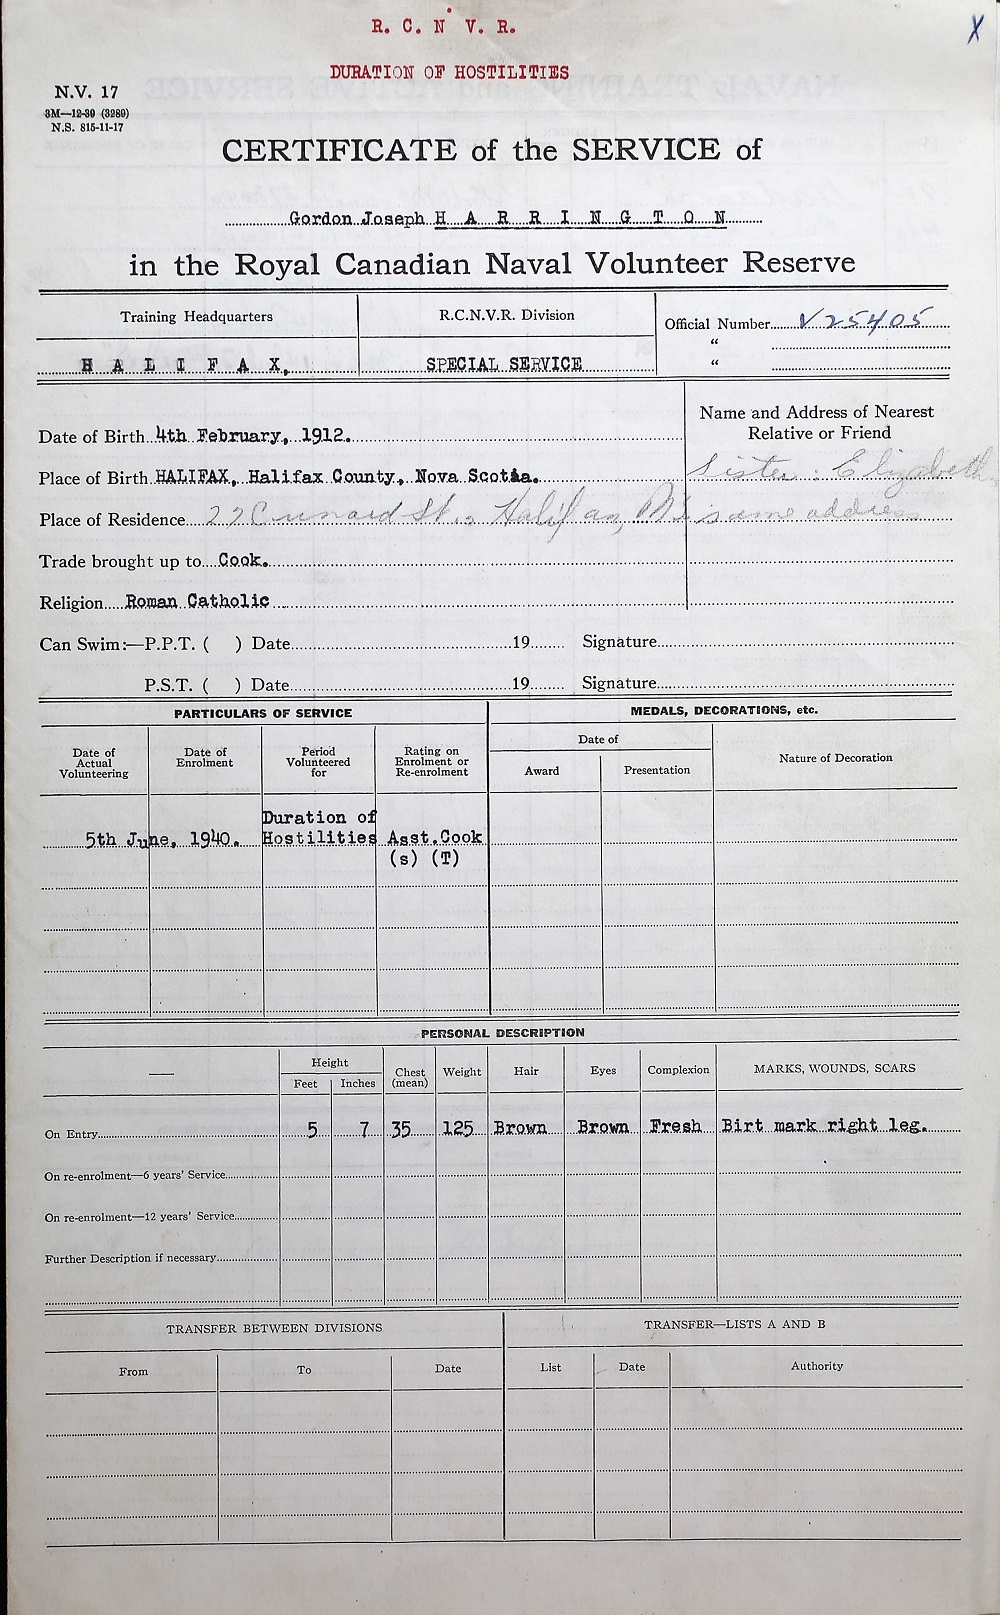 R. C. N V. R.
DURATION OF HOSTILITIES
X
N.V. 17
3M—12-39 (3289)
N.S. 815-11-17
CERTIFICATE of the SERVICE of
Gordon Joseph H A R R I N G T O N
in the Royal Canadian Naval Volunteer Reserve
Training Headquarters
H A L I F A X,
R.C.N.V.R. Division
SPECIAL SERVICE
Official Number V25405
"
"
Name and Address of Nearest
Relative or Friend
Sister: Elizabeth
same address
Date of Birth 4th February, 1912.
Place of Birth HALIFAX, Halifax County, Nova Scotia.
Place of Residence 22 Cunard St., Halifax,
Trade brought up to Cook.
Religion Roman Catholic
Can Swim:—P.P.T. ( ) Date 19 Signature
P.S.T. ( ) Date 19 Signature
PARTICULARS OF SERVICE
MEDALS, DECORATIONS, etc.
Date of
Actual
Volunteering
Date of
Enrolment
Period
Volunteered
for
Rating on
Enrolment or
Re-enrolment
Date of
Award
Presentation
Nature of Decoration
5th June, 1940.
Duration of
Hostilities
Asst.Cook
(s) (T)
PERSONAL DESCRIPTION
—
Height
Feet
Inches
Chest
(mean)
Weight
Hair
Eyes
Complexion
MARKS, WOUNDS, SCARS
On Entry 5 7 35 125 Brown Brown Fresh Birt mark right leg.
On re-enrolment—6 years' Service
On re-enrolment—12 years' Service
Further Description if necessary
TRANSFER BETWEEN DIVISIONS
TRANSFER—LISTS A AND B
From
To
Date
List
Date
Authority